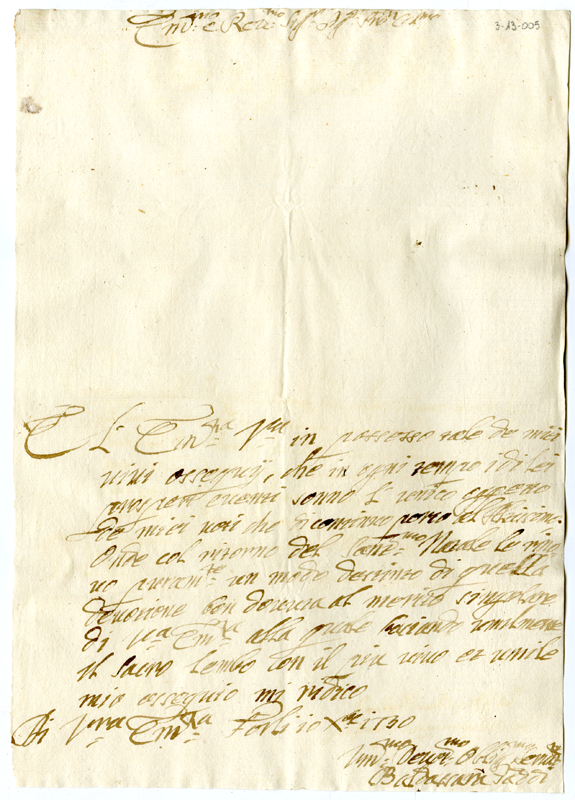 Em.mo e Rev.mo Sig.r Sig.r Pron Col.mo
3-13-005
È L'Em.za V.ra in possesso tale de miei
vivi ossequij, che in ogni tempo i di Lei
prosperi eventi sonno l'unico oggetto
de miei voti che di continuo porto al
Onde col ritorno del Sant.mo Natale le rino
vo un modo destinto di quella
devozione ben dovuta al merito singolare
di V.a Em.za alla quale baciando umilmente
il sacro lembo con il più vivo et umile
mio ossequio mi ratico
Di V.ra Em.za Forlì 10 Xbre 1730
Um.mo Devot.mo
Baldassarre